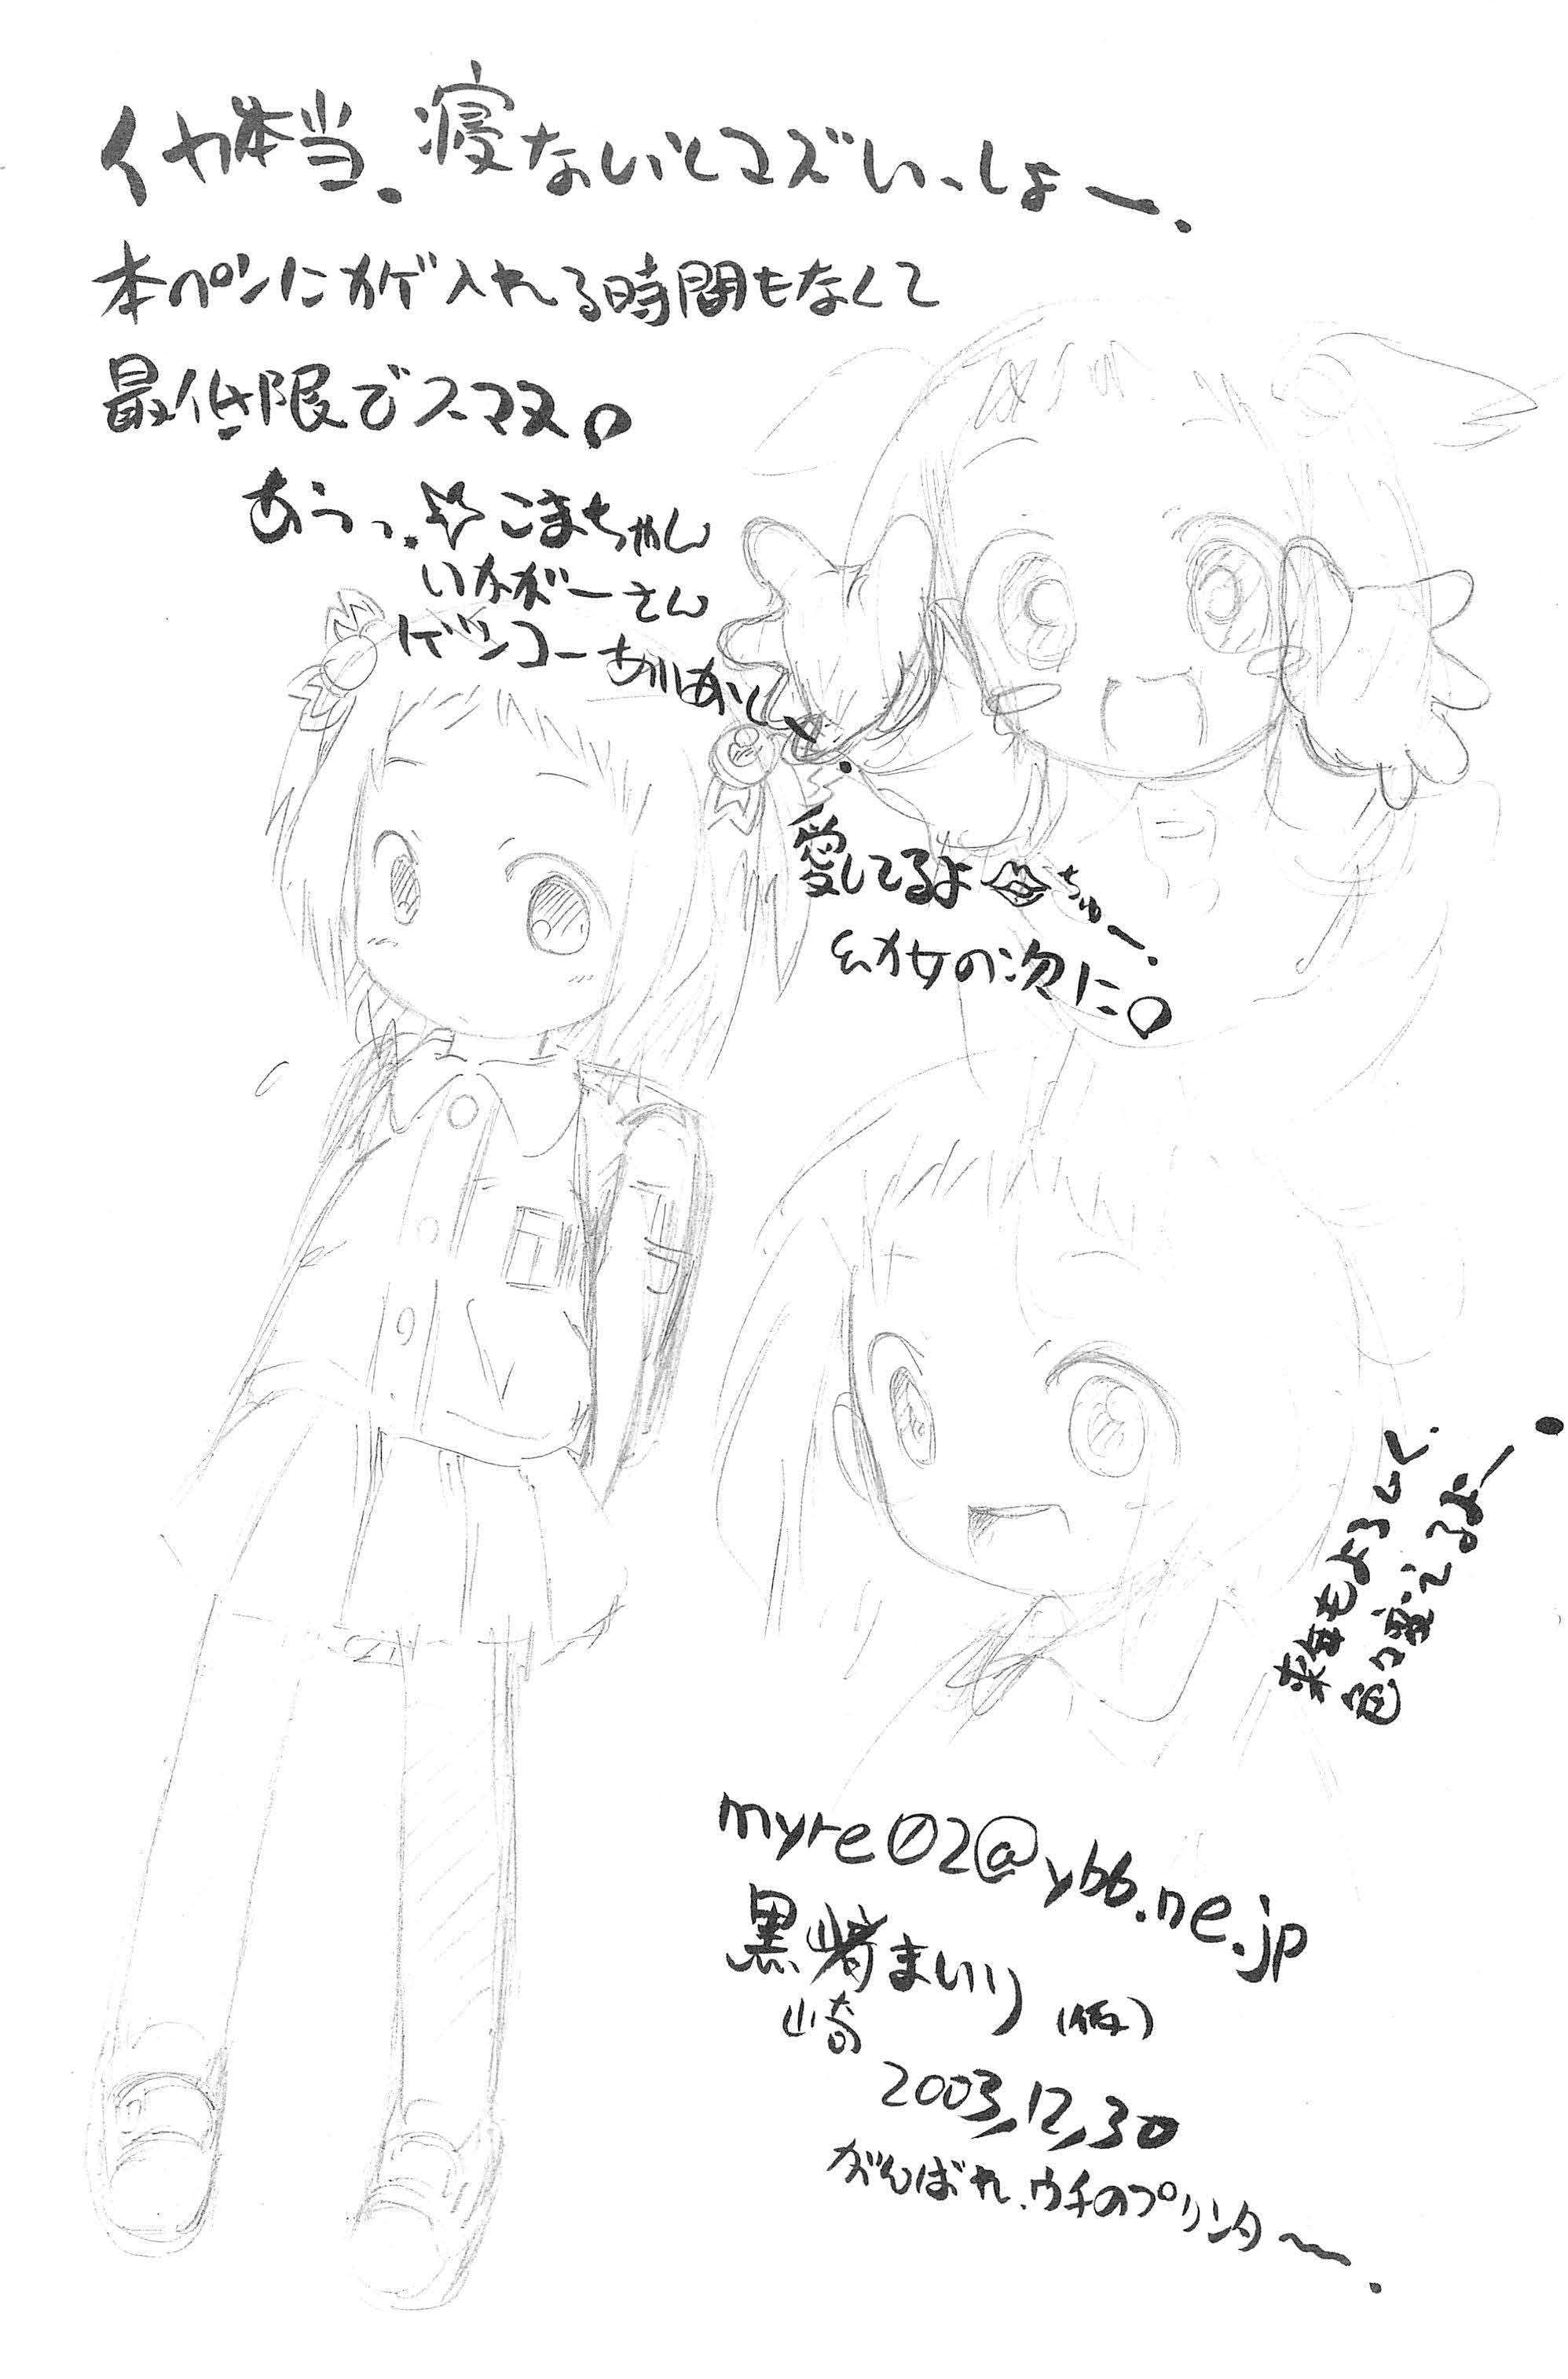 イヤ本当。寝ないとマズいっしょー。
本ペンにカゲ入れる時間もなくて
最低限でスマヌ。
あうっ。☆こまちゃん
いかがーさん
ゲツコーありあとー。
愛してるよ ちゅー。
幼女の次に。
来年もよろしく
色々変えるよー。
myre02@ybb.ne.jp
黒崎まいり(仮)
崎
2003,12,30
がんばれ、ウチのプリンタ〜。